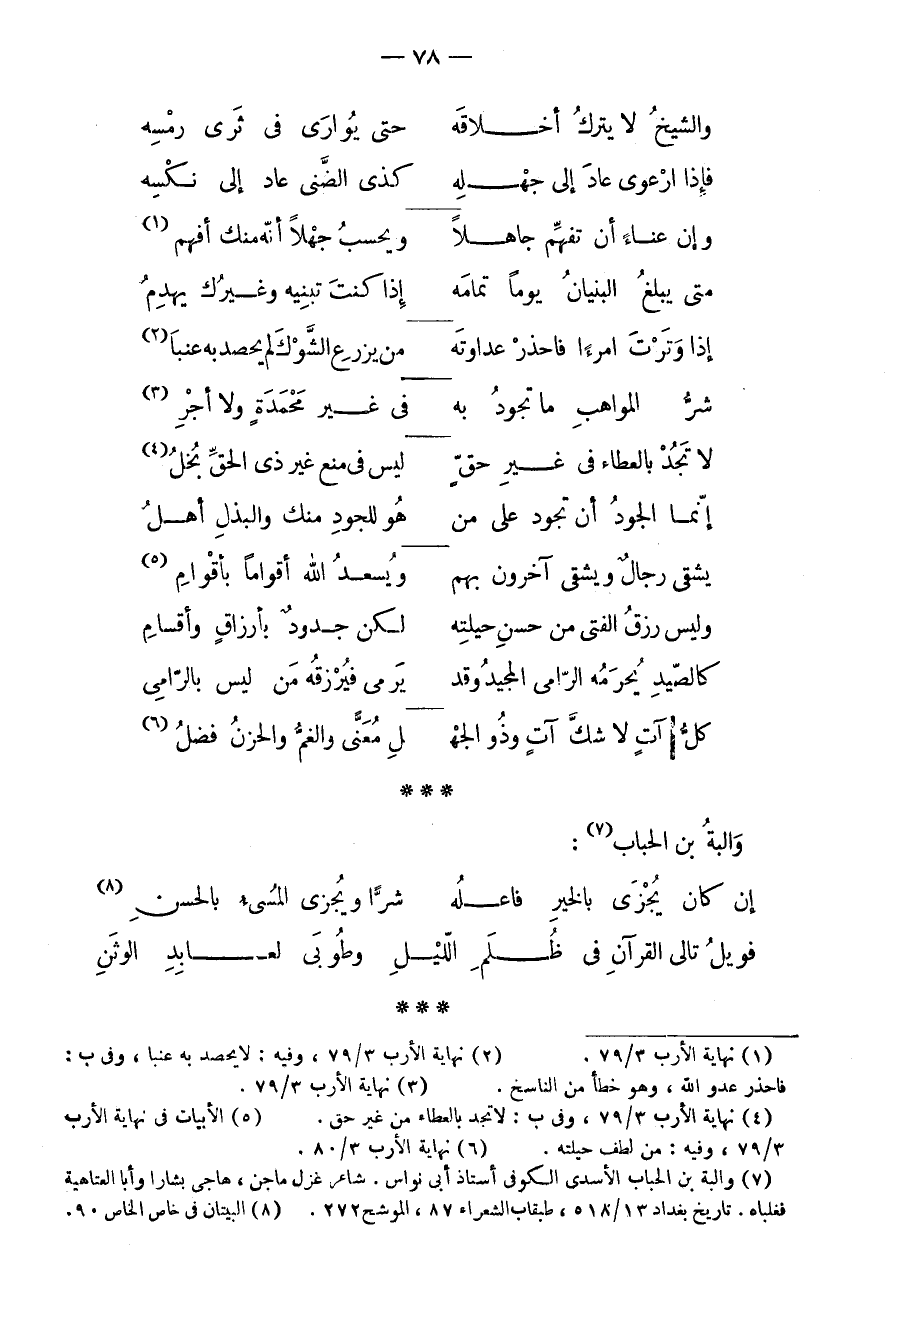 — ٧٨ —
والشيخُ لا يتركُ أخـلاقَه    حتى يُوارَى فى ثَرى رمْسِه
فإذا ارْعوى عادَ إلى جهْـلِه    كذى الضَّنى عاد إلى نكْسِه
وإن عناءً أن تفهِّم جاهـلاً    ويحسبُ جهْلاً أنّه منك أفهم (١)
متى يبلغُ البنيانُ يوماً تمامَه    إذا كنتَ تبنِيه وغيرُك يهدِمُ
إذا وَتَرْتَ امرءًا فاحذرْ عداوتَه    من يزرعِ الشَّوْكَ لم يحصد به عنبَا (٢)
شرُّ المواهبِ ما تجودُ به    فى غـيرِ مَحْمَدَةٍ ولا أجْرِ (٣)
لا تَجُدْ بالعطاء فى غـيرِ حقٍّ    ليس فى منع غير ذى الحقِّ بُخلُ (٤)
إنّما الجودُ أن تجود على من    هُو للجودِ منك والبذلِ أهلُ
يشقى رجالٌ ويشقى آخرون بهم    ويُسعدُ الله أقواماً بأقْوامِ (٥)
وليس رزقُ الفتى من حسنِ حيلتِه    لكن جدودٌ بأرزاقٍ وأقسامِ
كالصّيدِ يُحرَمُه الرّامى المجيدُ وقد    يَرمى فيُرْزقُه مَن ليس بالرّامِى
كلُّ آتٍ لا شكَّ آتٍ وذُو الجهْـ    لِ مُعَنًّى والغمُّ والحزنُ فضلُ (٦)
* * *
وَالبةُ بن الحباب (٧) :
إن كان يُجْزَى بالخيرِ فاعـلُه    شرًّا ويُجزى المُسىء بالحسنِ (٨)
فويلُ تالى القرآنِ فى ظُـلَمِ اللّيْـلِ    وطُوبَى لعـابِدِ الوثَنِ
* * *
(١) نهاية الأرب ٧٩/٣ . (٢) نهاية الأرب ٧٩/٣ ، وفيه : لا يحصد به عنبا ، وفى ب :
فاحذر عدو الله ، وهو خطأ من الناسخ . (٣) نهاية الأرب ٧٩/٣ .
(٤) نهاية الأرب ٧٩/٣ ، وفى ب : لاتجد بالعطاء من غير حق . (٥) الأبيات فى نهاية الأرب
٧٩/٣ ، وفيه : من لطف حيلته . (٦) نهاية الأرب ٨٠/٣ .
(٧) والبة بن الحباب الأسدى الكوفى أستاذ أبى نواس . شاعر غزل ماجن ، هاجى بشارا وأبا العتاهية
فغلباه . تاريخ بغداد ٥١٨/١٣ ، طبقاب الشعراء ٨٧ ، الموشح ٢٧٢ . (٨) البيتان فى خاص الخاص ٩٠.